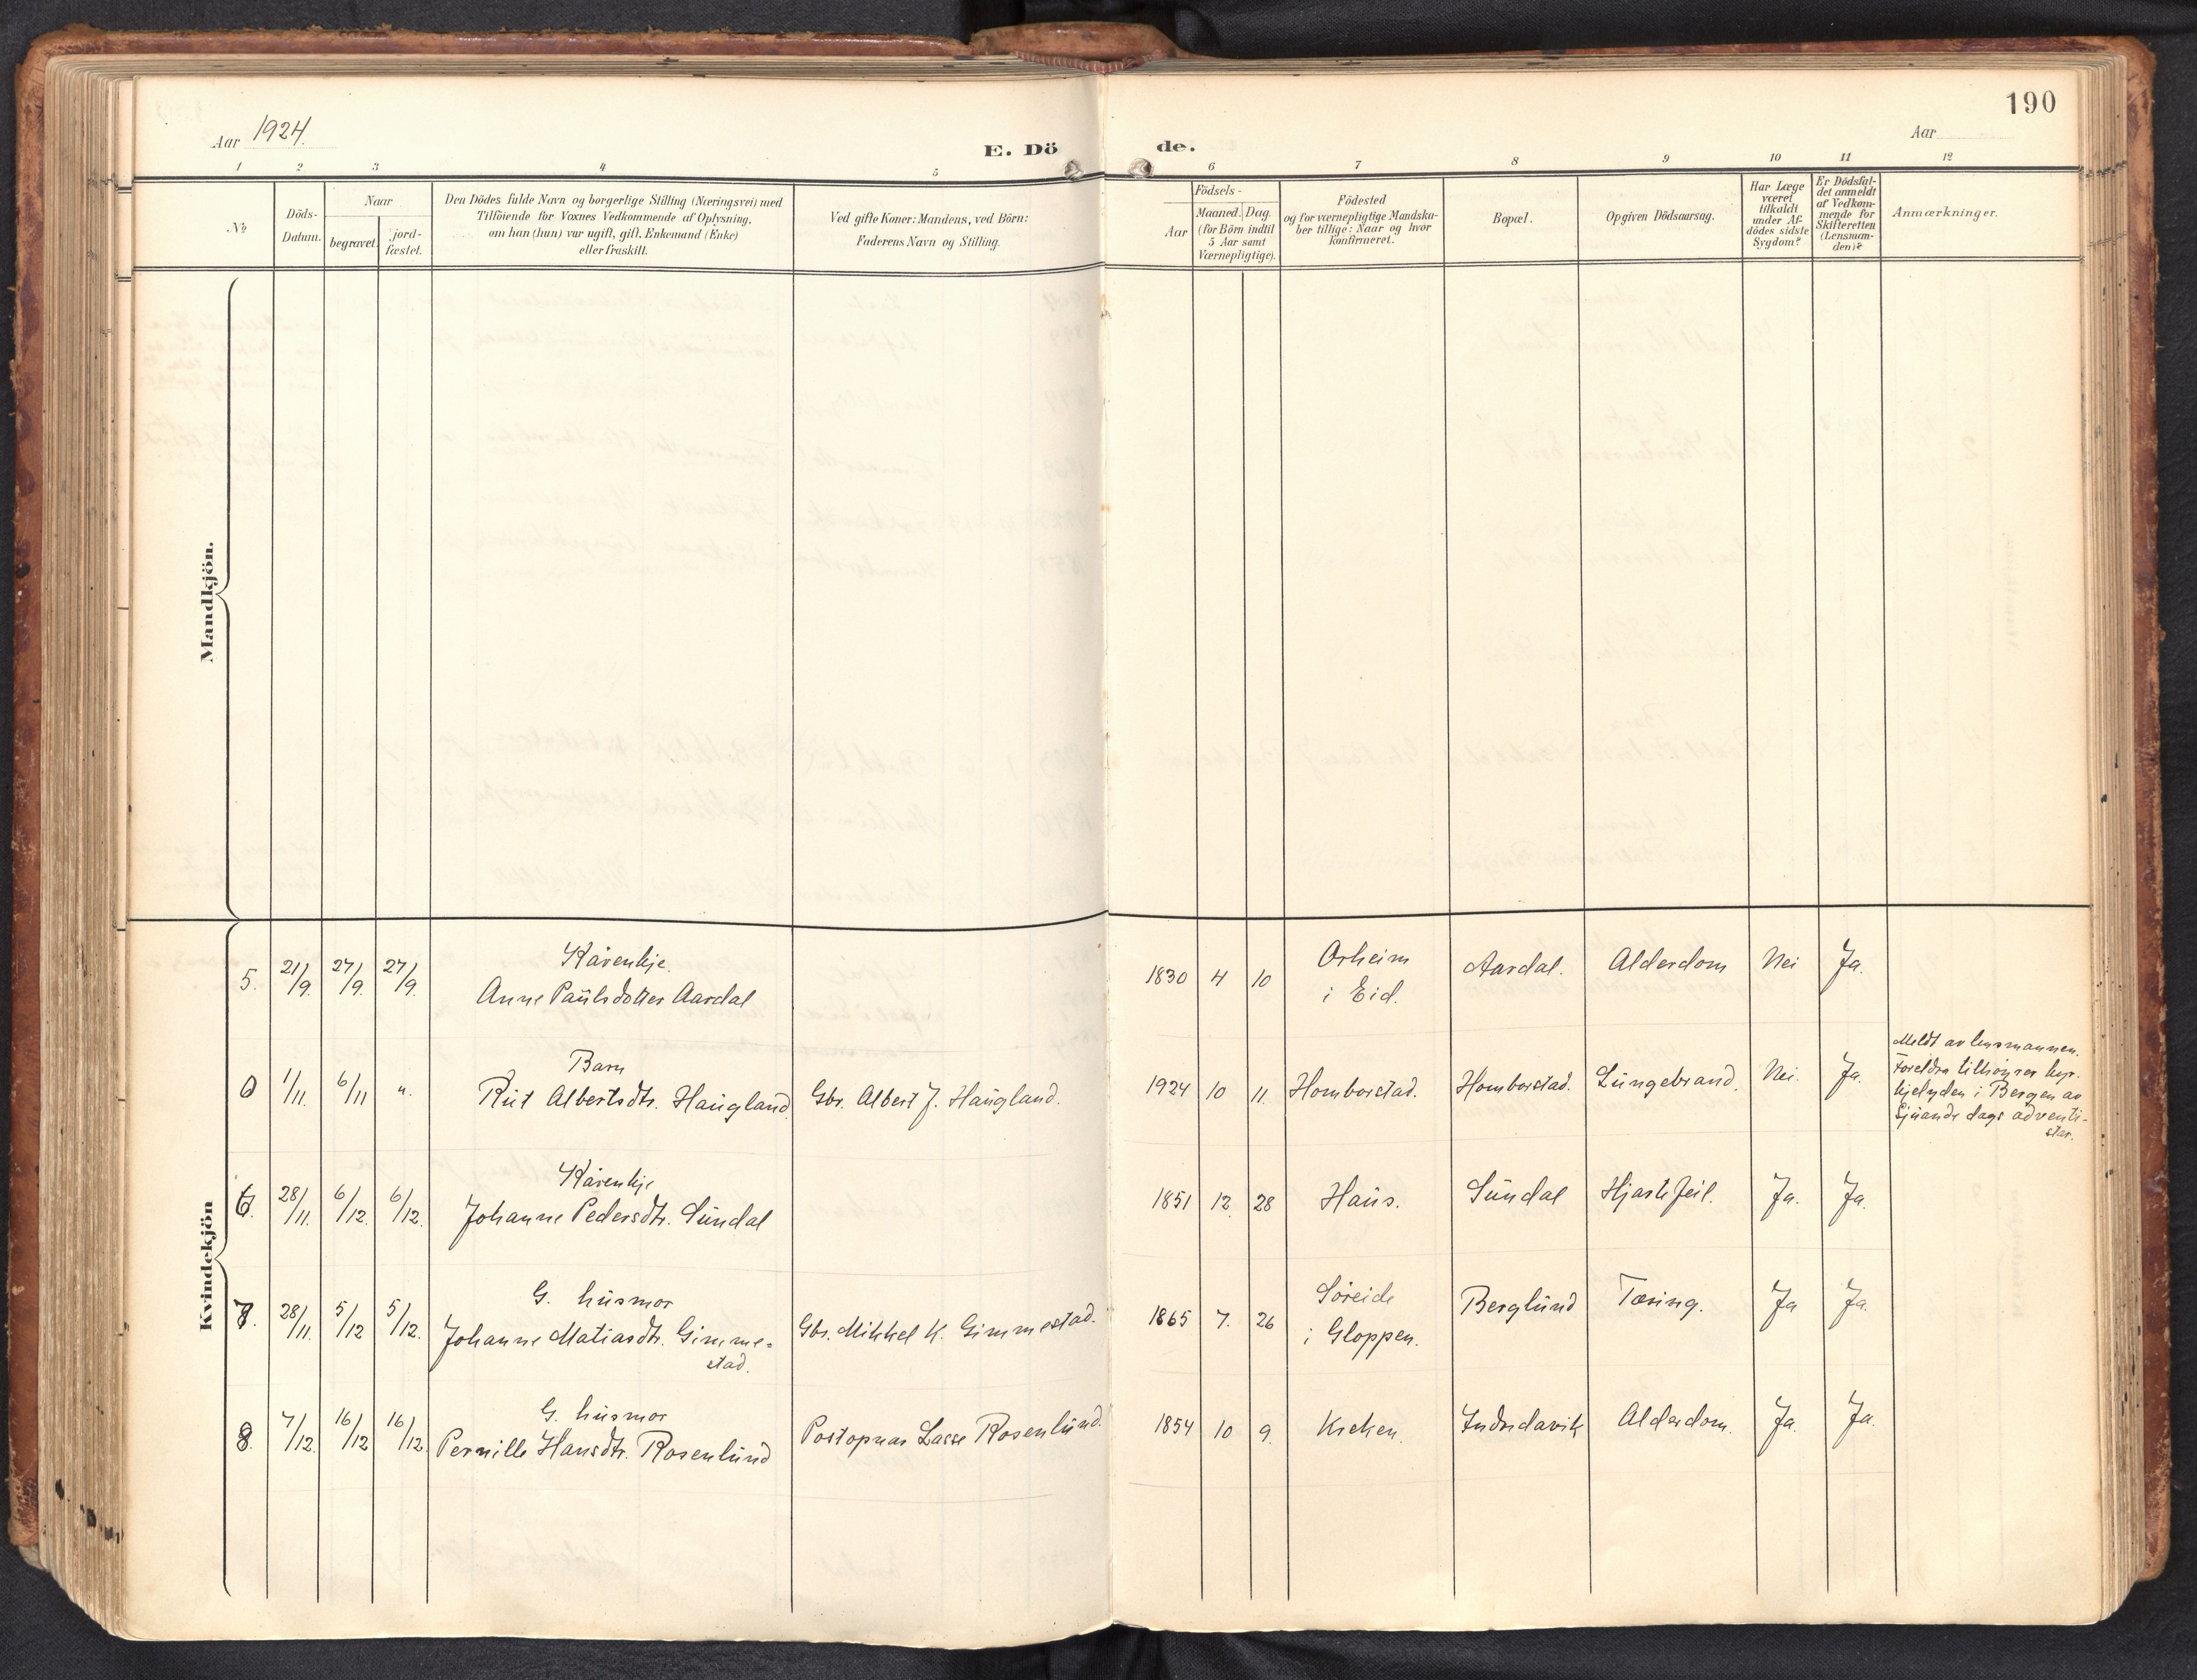 190
Aar 1924.
E. Dö
de.
Aar
1 2 3 4 5 6 7 8 9 10 11 12
No
Döds-
Datum.
Naar
begravet.
jord-
fæstet.
Den Dödes fulde Navn og borgerlige Stilling (Næringsvei) med
Tilföiende for Voxnes Vedkommende af Oplysning,
om han (hun) var ugift, gift, Enkemand (Enke)
eller fraskilt.
Ved gifte Koner: Mandens, ved Börn:
Faderens Navn og Stilling.
Födsels-
Aar
Maaned. Dag.
(for Börn indtil
5 Aar samt
Værnepligtige).
Födested
og for værnepligtige Mandska-
ber tillige: Naar og hvor
konfirmeret.
Bopæl.
Opgiven Dödsaarsag.
Har Læge
været
tilkaldt
under Af-
dödes sidste
Sygdom?
Er Dödsfal-
det anmeldt
af Vedkom-
mende for
Skifteretten
(Lensman-
den)?
Anmærkninger.
Mandkjön.
Kvindekjön
Kårenkje.
5. 21/9. 27/9. 27/9. Anne Paulsdotter Aardal
1830 4 10 Orheim
i Eid.
Aardal. Alderdom Nei Ja.
Barn
0 1/11. 6/11 „. Rut Albertsdtr. Haugland Gbr. Albert J. Haugland.
1924 10 11. Homborstad. Homborstad. Lungebrand. Nei. Ja.
Meldt av lensmannen.
Foreldra tilhøyrer kyr-
kjelyden i Bergen av
Sjuande dags adventi-
star.
Kårenkje
6. 28/11. 6/12. 6/12. Johanne Pedersdtr. Sundal
1851 12. 28 Haus. Sundal Hjartefeil. Ja. Ja.
G. husmor
7. 28/11. 5/12 5/12. Johanne Matiasdtr. Gimme-
stad.
Gbr. Mikkel K. Gimmestad.
1865 7. 26 Søreide
i Gloppen.
Berglund Tæring. Ja Ja.
G. husmor
8. 7/12. 16/12 16/12. Pernille Hansdtr. Rosenlund Postopnar Lasse Rosenlund.
1854 10 9. Kreken. Indredavik Alderdom. Ja. Ja.